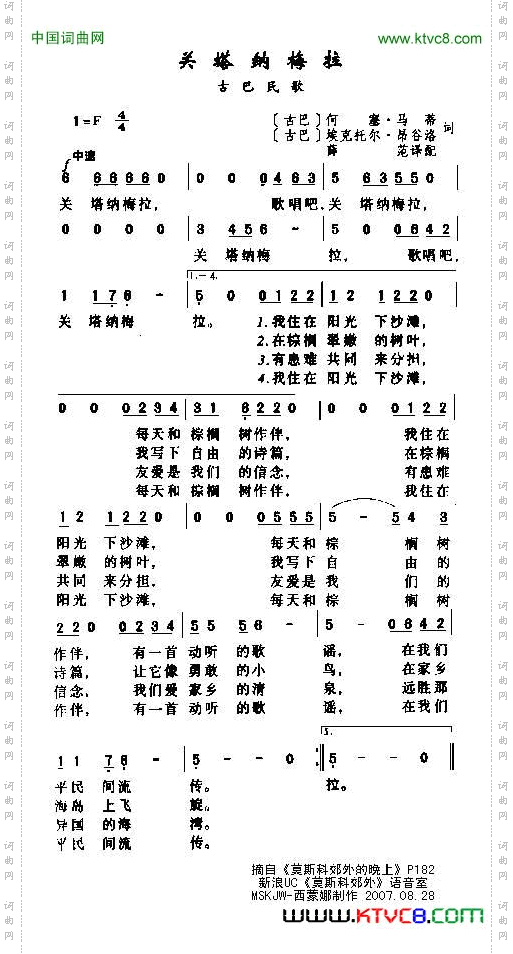 中国词曲网
www.ktvc8.com
关塔纳梅拉
古巴民歌
1=F 4/4
〔古巴〕何塞·马蒂
〔古巴〕埃克托尔·昂谷洛 词
薛范译配
中速
6 66660 | 0 0 0463 | 5 63550 |
关 塔纳梅拉, 歌唱吧,关 塔纳梅拉,
0 0 0 0 | 3 456 - | 5 0 0642 |
关 塔纳梅 拉, 歌唱吧,
1.-4.
1 176 - | 5 0 0122 | 12 1220 |
关 塔纳梅 拉. 1.我住在 阳光 下沙滩,
2.在棕榈 翠嫩 的树叶,
3.有患难 共同 来分担,
4.我住在 阳光 下沙滩,
0 0 0234 | 31 6220 | 0 0 0122 |
每天和 棕榈 树作伴, 我住在
我写下 自由 的诗篇, 在棕榈
友爱是 我们 的信念, 有患难
每天和 棕榈 树作伴, 我住在
12 1220 | 0 0 0555 | 5 - 54 3 |
阳光 下沙滩, 每天和 棕 榈 树
翠嫩 的树叶, 我写下 自 由 的
共同 来分担, 友爱是 我 们 的
阳光 下沙滩, 每天和 棕 榈 树
220 0234 | 55 56 | 5 - 0642 |
作伴, 有一首 动听 的歌 谣, 在我们
诗篇, 让它像 勇敢 的小 鸟, 在家乡
信念, 我们爱 家乡 的清 泉, 远胜那
作伴, 有一首 动听 的歌 谣, 在我们
5.
11 76 | 5 - 0 :‖ 5 - 0 ‖
平民 间流 传。 拉。
海岛 上飞 旋。
异国 的海 湾。
平民 间流 传。
摘自《莫斯科郊外的晚上》P182
新浪UC《莫斯科郊外》语音室
MSKJW-西蒙娜制作 2007.08.28
www.KTVC8.com